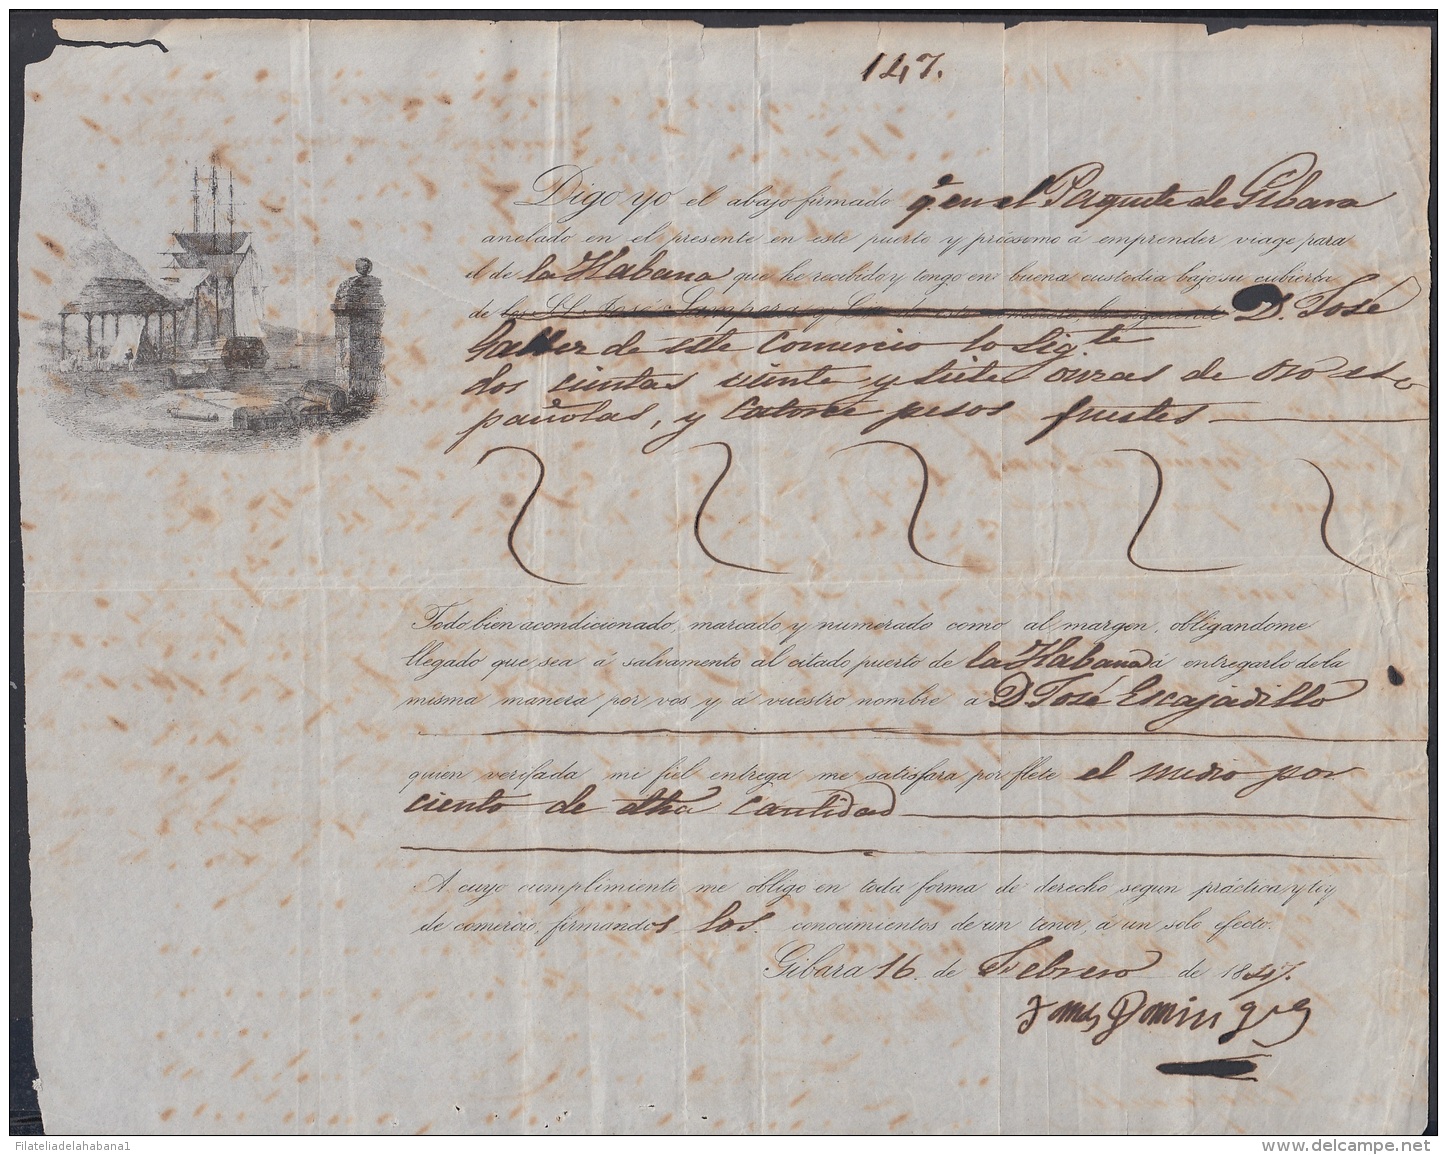 147.
Digo yo el abajo firmado q.e en el Paquete de Gibara
anclado en el presente en este puerto y prócsimo á emprender viage para
el de la Habana que he recibido y tengo en buena custodia bajo su cubierta
de los SS. José Sampera y D. José
de este Comercio lo sig.te
dos cientas veinte y siete onzas de oro es-
pañolas, y catorce pesos fuertes
Todo bien acondicionado, marcado y numerado como al margen, obligandome
llegado que sea á salvamento al citado puerto de la Habana á entregarlo de la
misma manera por vos y á vuestro nombre a D. José Escajadillo
quien verifada mi fiel entrega me satisfara por flete el medio por
ciento de dha cantidad
A cuyo cumplimiento me obligo en toda forma de derecho segun práctica y ley
de comercio, firmandos los conocimientos de un tenor, á un solo efecto.
Gibara 16 de Febrero de 1847.
Domingez
Filateliadelahabana1
delcampe.net